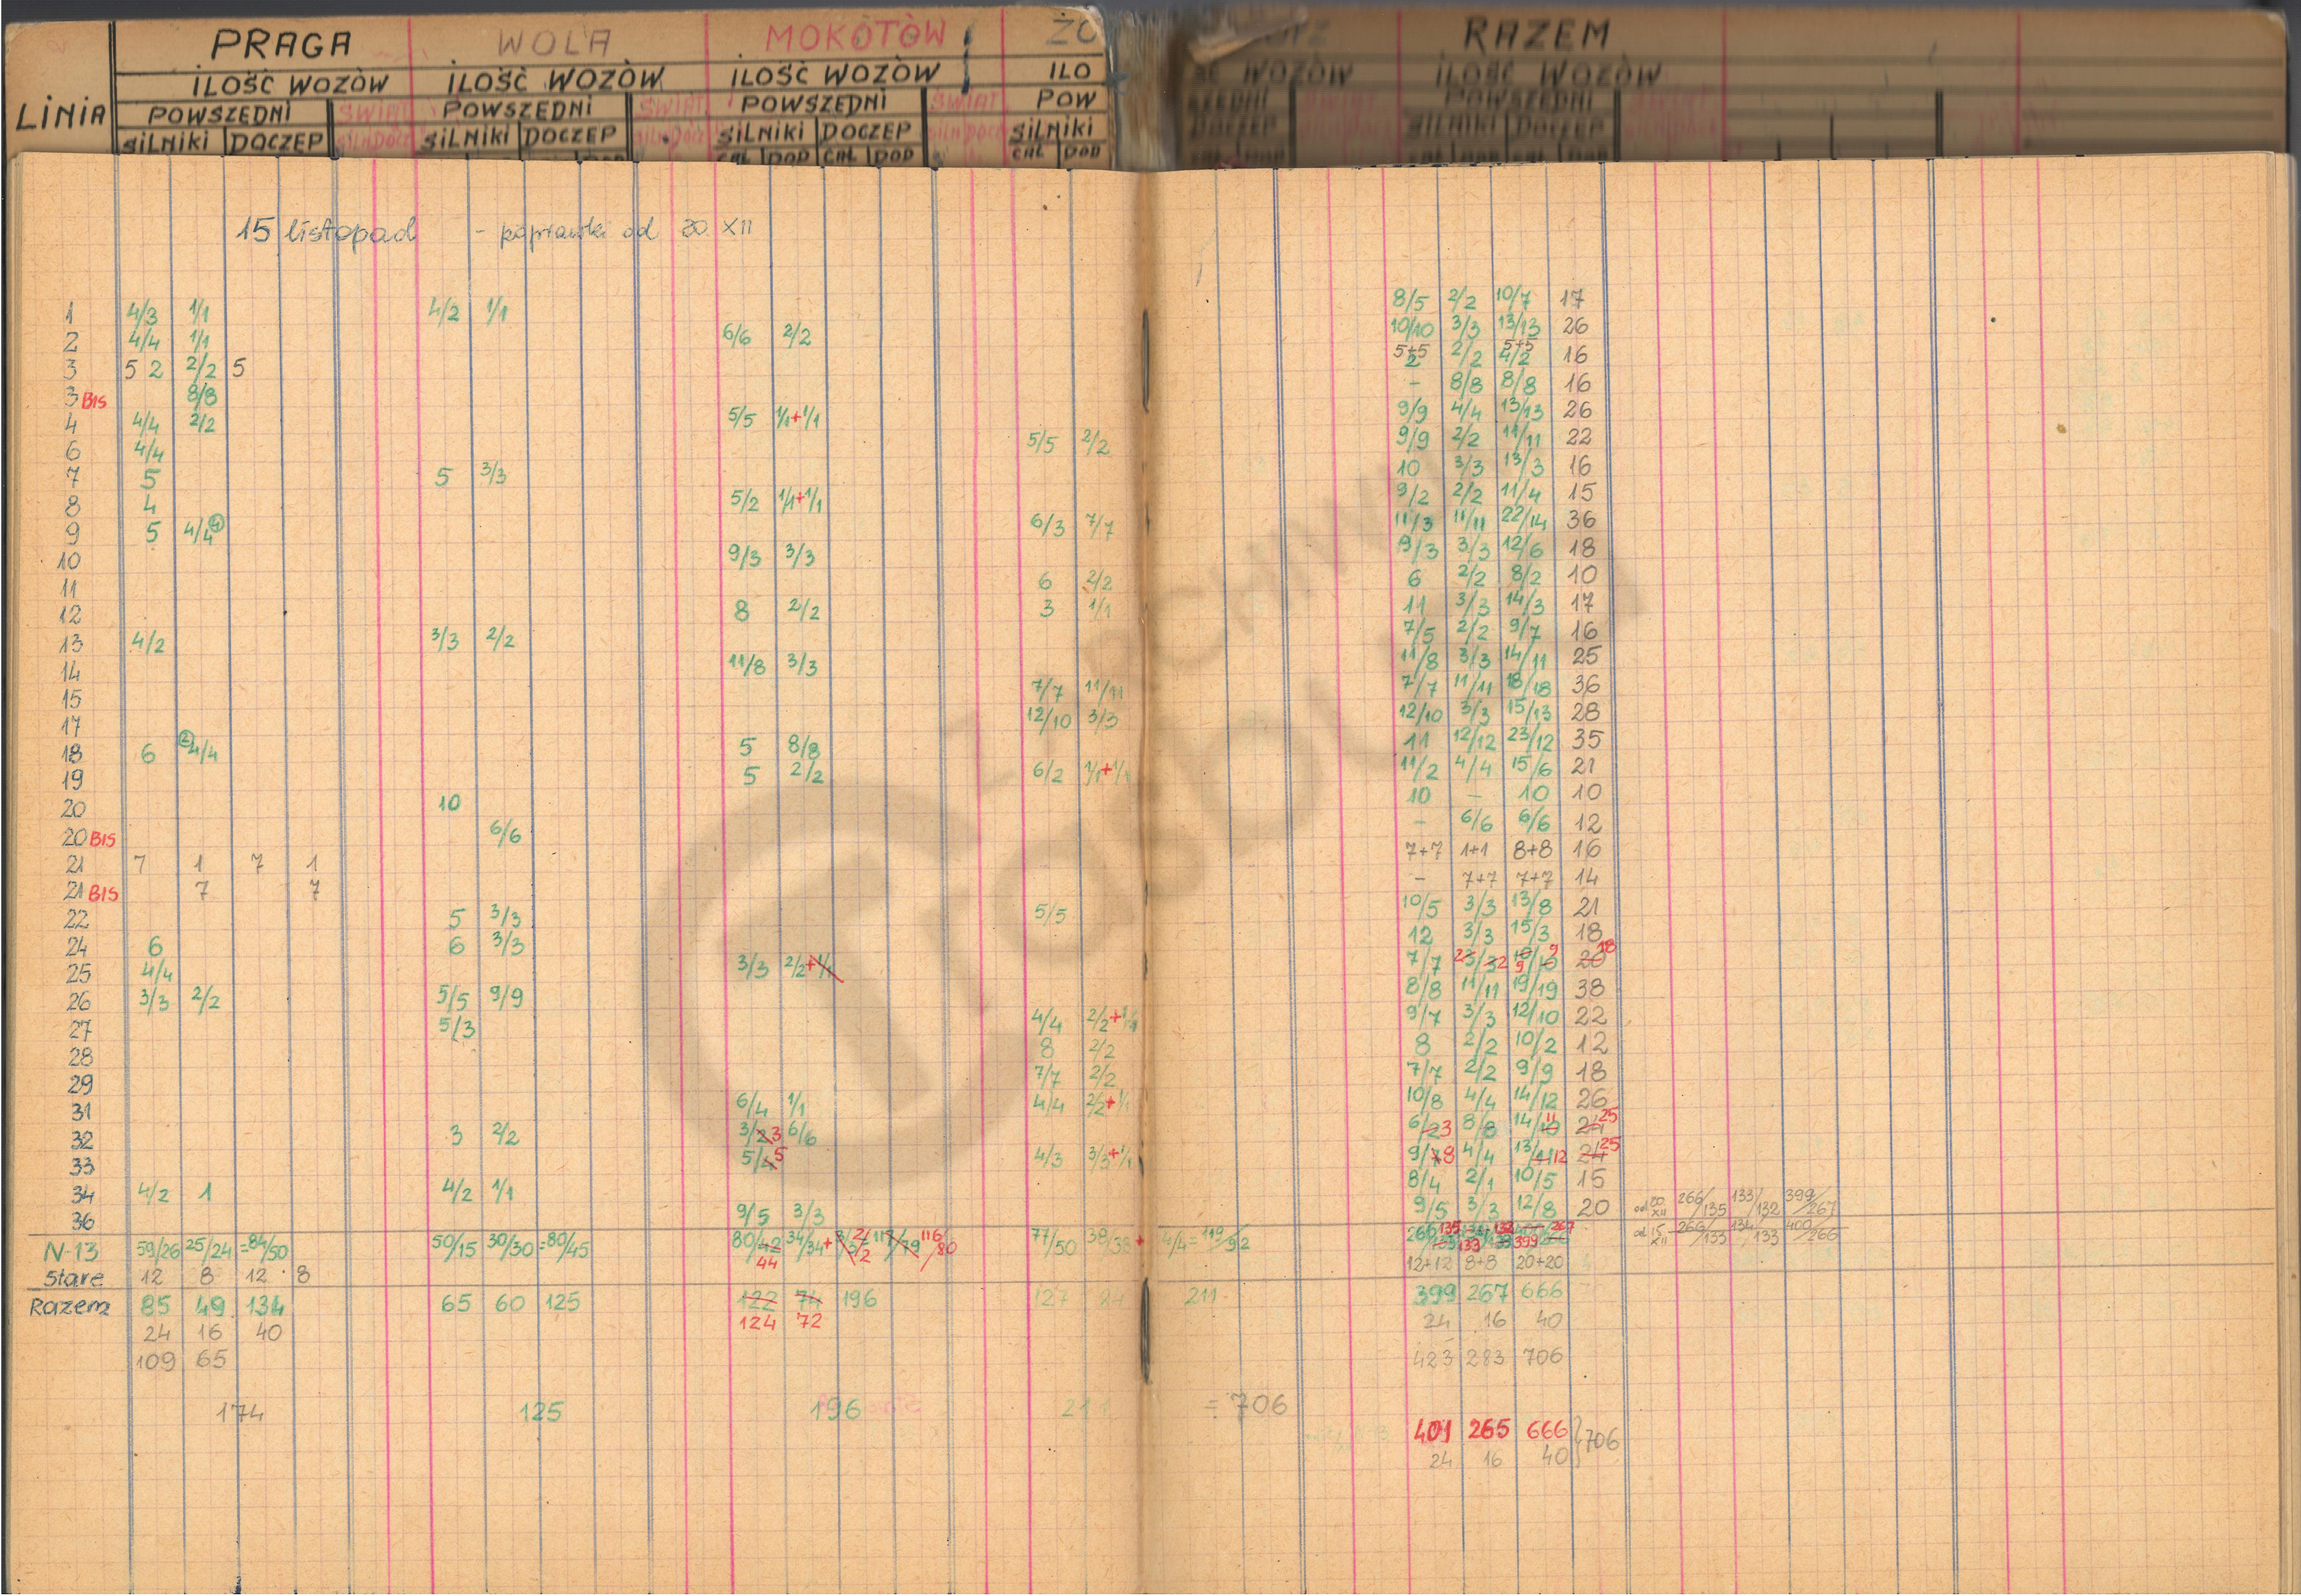 PRAGA WOLA MOKOTÓW ŻO RAZEM
ILOŚĆ WOZÓW ILOŚĆ WOZÓW ILOŚĆ WOZÓW ILO WOZÓW ILOŚĆ WOZÓW
LINIA POWSZEDNI ŚWIĄT POWSZEDNI ŚWIĄT POWSZEDNI ŚWIĄT POW POWSZEDNI
SILNIKI DOCZEP SILNIKI DOCZEP SILNIKI DOCZEP SILNIKI DOCZEP SILNIKI DOCZEP
CAŁ DOD CAŁ DOD CAŁ DOD
15 listopad - poprawki od 20 XII
1 4/3 1/1 4/2 1/1 8/5 2/2 10/7 17
2 4/4 1/1 6/6 2/2 10/10 3/3 13/13 26
3 5 2 2/2 5 5+5 2 2/2 5+5 4/2 16
3 BIS 8/8 - 8/8 8/8 16
4 4/4 2/2 5/5 1/1+1/1 9/9 4/4 13/13 26
6 4/4 5/5 2/2 9/9 2/2 11/11 22
7 5 5 3/3 10 3/3 13/3 16
8 4 5/2 1/1+1/1 9/2 2/2 11/4 15
9 5 4/4 4 6/3 7/7 11/3 11/11 22/14 36
10 9/3 3/3 9/3 3/3 12/6 18
11 6 2/2 6 2/2 8/2 10
12 8 2/2 3 1/1 11 3/3 14/3 17
13 4/2 3/3 2/2 7/5 2/2 9/7 16
14 11/8 3/3 11/8 3/3 14/11 25
15 7/7 11/11 7/7 11/11 18/18 36
17 12/10 3/3 12/10 3/3 15/13 28
18 6 2 4/4 5 8/8 11 12/12 23/12 35
19 5 2/2 6/2 1/1+1/1 11/2 4/4 15/6 21
20 10 10 - 10 10
20 BIS 6/6 - 6/6 6/6 12
21 7 1 7 1 7+7 1+1 8+8 16
21 BIS 7 7 - 7+7 7+7 14
22 5 3/3 5/5 10/5 3/3 13/8 21
24 6 6 3/3 12 3/3 15/3 18
25 4/4 3/3 2/2+1/1 7/7 23/32 10/10 9 9 20 18
26 3/3 2/2 5/5 9/9 8/8 11/11 19/19 38
27 5/3 4/4 2/2+1/1 9/7 3/3 12/10 22
28 8 2/2 8 2/2 10/2 12
29 7/7 2/2 7/7 2/2 9/9 18
31 6/4 1/1 4/4 2/2+1/1 10/8 4/4 14/12 26
32 3 2/2 3/2 3 6/6 6/2 3 8/8 14/10 11 24 25
33 5/4 5 4/3 3/3+1/1 9/7 8 4/4 13/11 12 24 25
34 4/2 1 4/2 1/1 8/4 2/1 10/5 15
36 9/5 3/3 9/5 3/3 12/8 20 od 20 XII 266/135 133/132 399/267
N-13 59/26 25/24 =84/50 50/15 30/30 =80/45 80/42 44 34/34+3/3 2/2 117/79 116/80 77/50 38/38+4/4=119/92 od 15 XII 266/133 134/133 400/266
Stare 12 8 12 8 12+12 8+8 20+20
Razem 85 49 134 65 60 125 122 74 196 127 84 211 399 267 666
24 16 40 124 72 24 16 40
109 65 423 283 706
174 125 196 211 =706
401 265 666 } 706
24 16 40